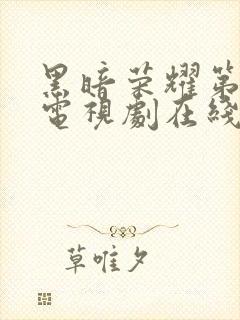 黑暗荣耀第
電視劇在綫
草唯夕